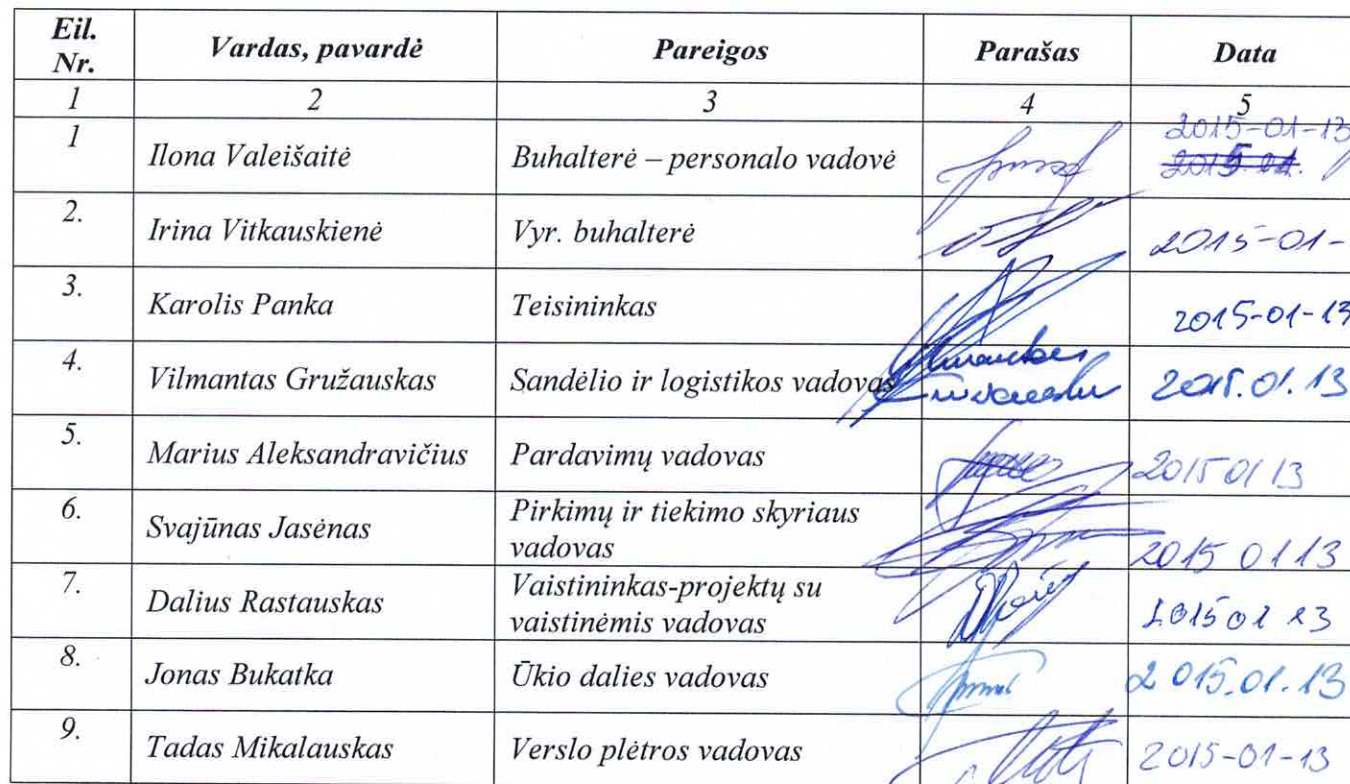 Eil. Nr. Vardas, pavardė Pareigos Parašas Data
1 2 3 4 5
1 Ilona Valeišaitė Buhalterė – personalo vadovė 2015-01-13
2015 01.
2. Irina Vitkauskienė Vyr. buhalterė 2015-01-
3. Karolis Panka Teisininkas 2015-01-13
4. Vilmantas Gružauskas Sandėlio ir logistikos vadovas 2015.01.13
5. Marius Aleksandravičius Pardavimų vadovas 2015 01 13
6. Svajūnas Jasėnas Pirkimų ir tiekimo skyriaus
vadovas 2015 01 13
7. Dalius Rastauskas Vaistininkas-projektų su
vaistinėmis vadovas 2015 01 13
8. Jonas Bukatka Ūkio dalies vadovas 2015.01.13
9. Tadas Mikalauskas Verslo plėtros vadovas 2015-01-13